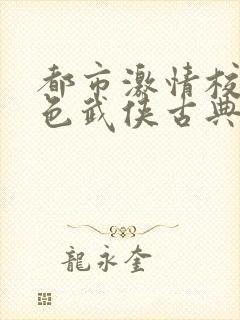 都市激情校
色武侠古典
龍永奎